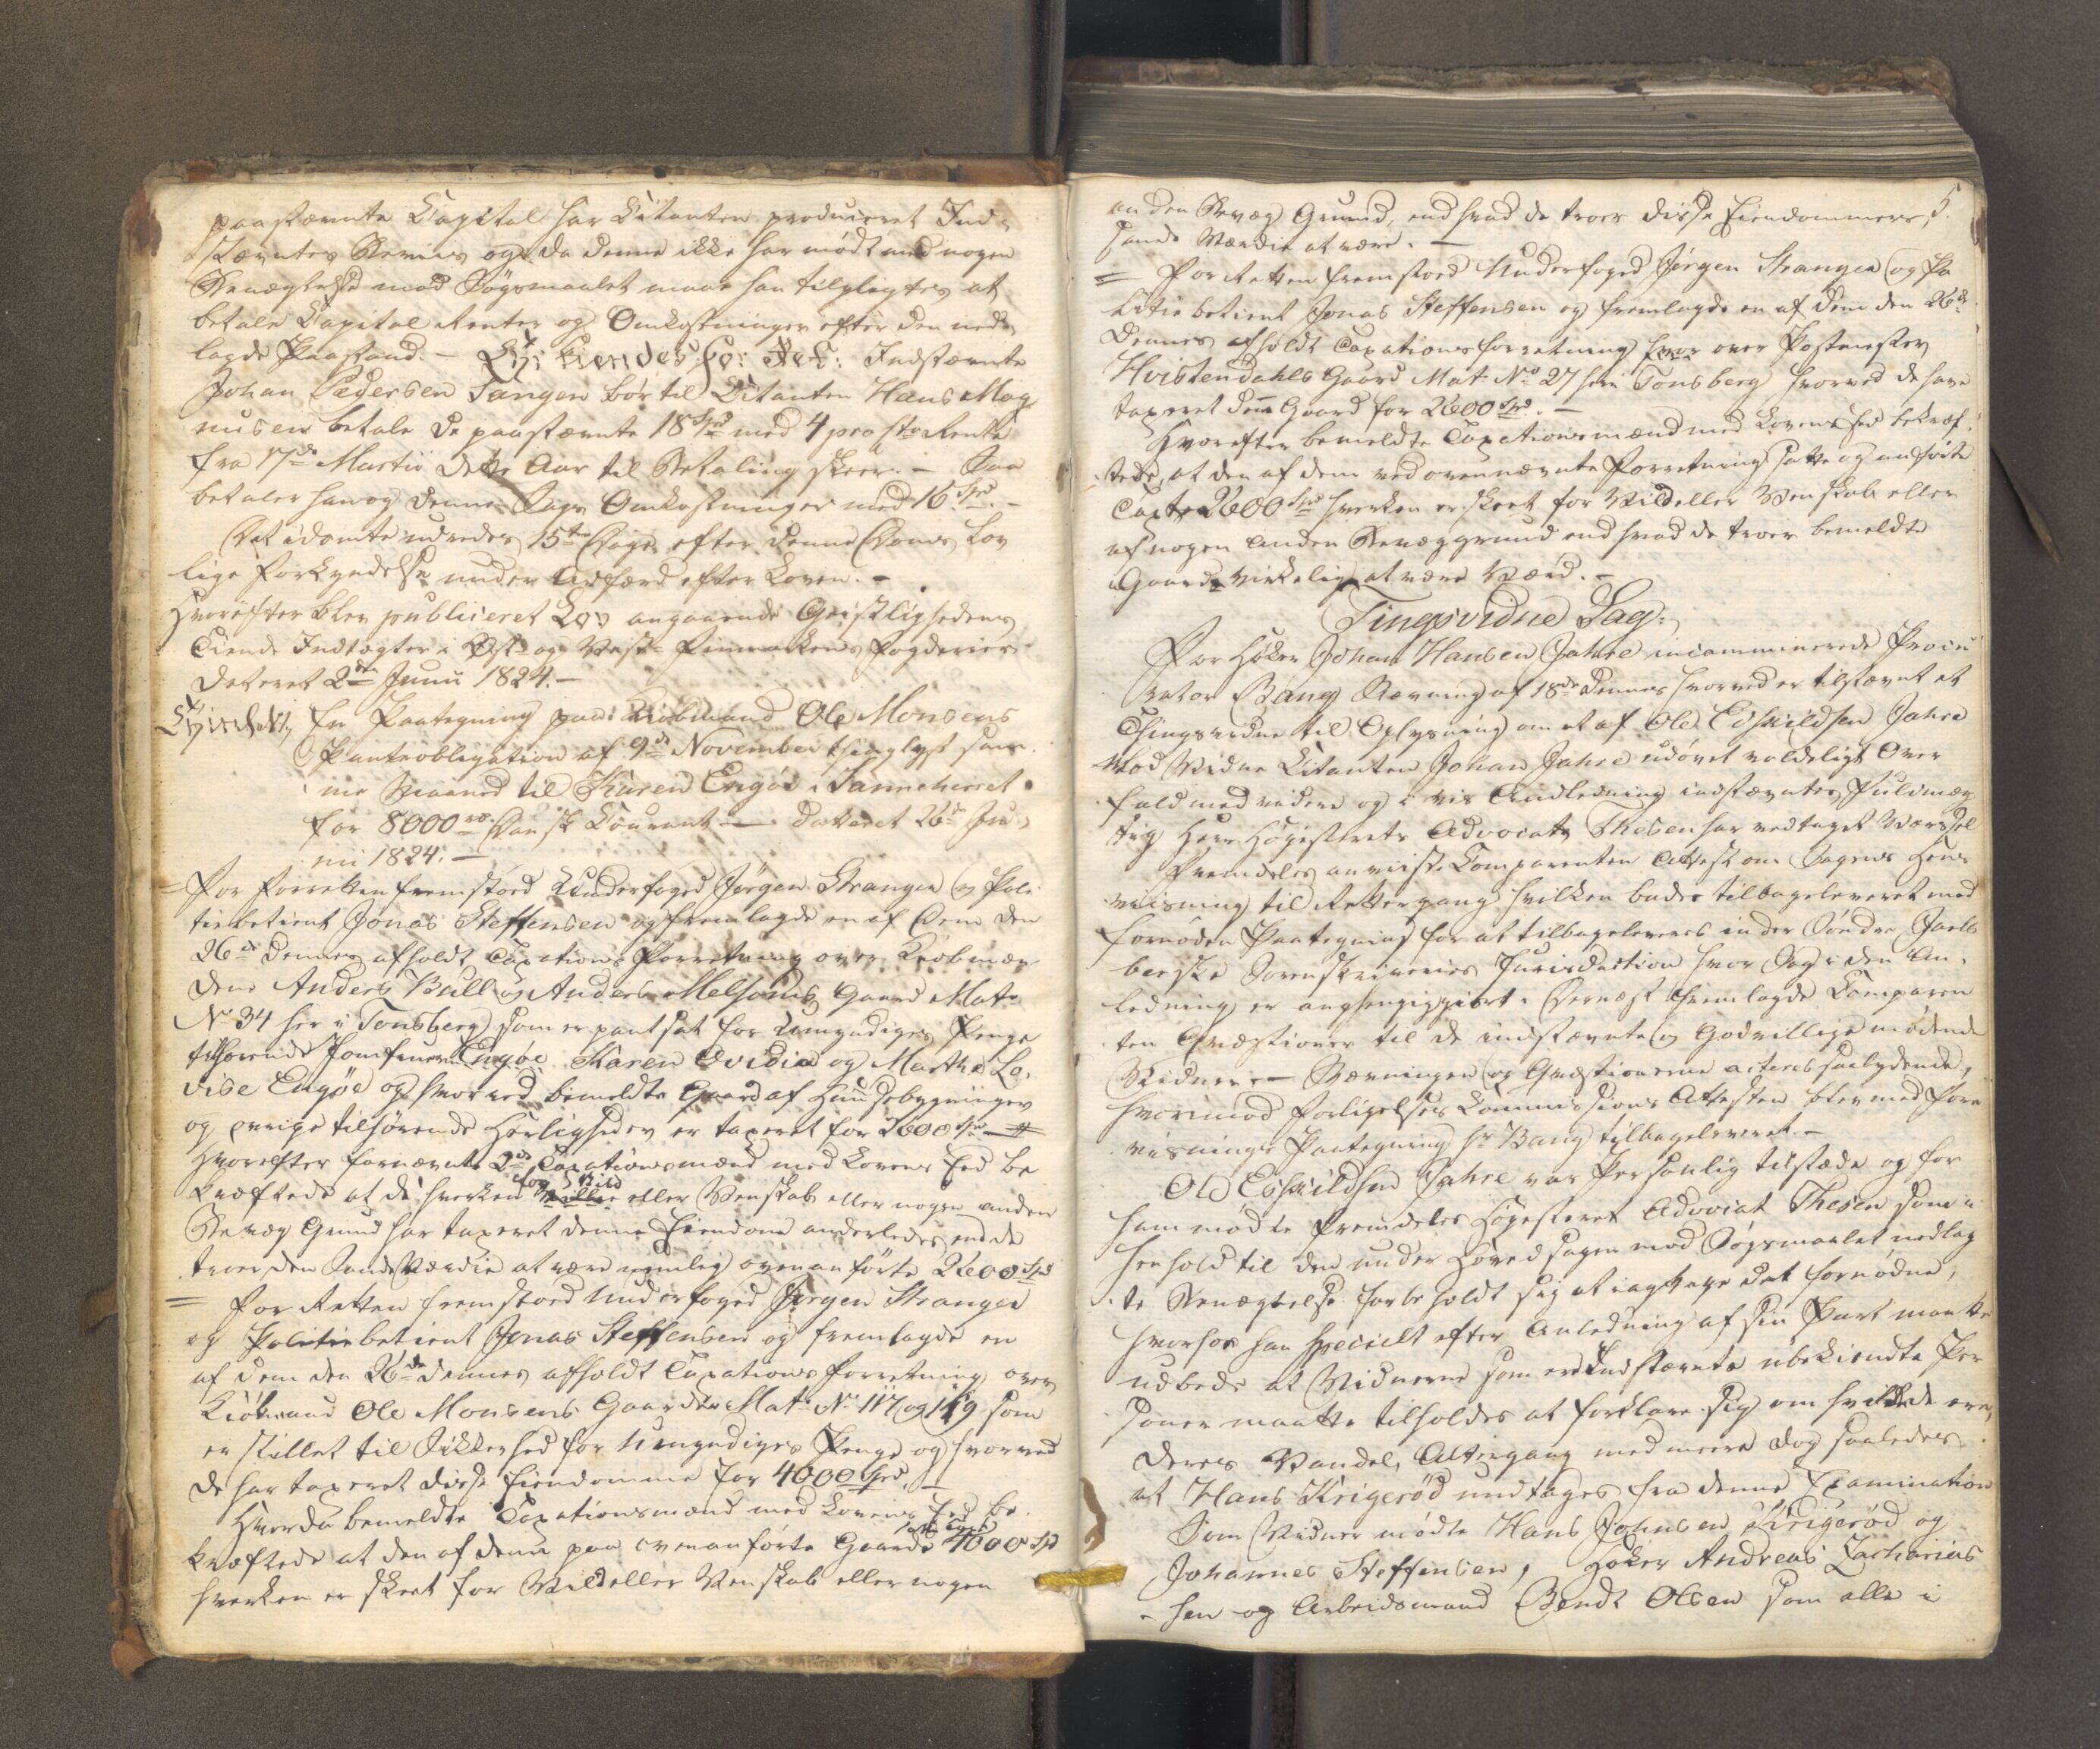 paastævnte Capital har Citanten produceret Ind-
stævntes Beviis og da denne ikke har mødt med nogen
Benægtelse mod Søgsmaalet maae han tilpligtes at
betale Capital Renter og Omkostninger efter den ned-
lagde Paastand. - Thi kiendes for Ret: Indstævnte
Johan Pedersen Tangen bør til Citanten Hans Mag-
nusen betale de paastævnte 18 Spd med 4 pro Cto Rente
fra 17de Martii dette Aar til Betaling skeer. - Saa
betaler han og denne Sags Omkostninger med 16 Spd. -
Det idømte udredes 15ten Dage efter denne Doms Lov
lige Forkyndelse under Adfærd efter Loven. -
Hvorefter blev publiceret Lov angaaende Geistlighedens
Tiende Indtægter i Øst- og Vest-Finmarkens Fogderier
dateret 2den Junii 1824. -
En Paategning paa Kiøbmand Ole Monsens
Pantobligation af 9de November thinglyst sam-
me Maaned til Karen Engøe i Sannehuset
for 8000 rd. Dansk Courant - datteret 26de Ju-
nii 1824. -
= For Forretten fremstoed Underfoged Jørgen Stranger og Poli
tiebetient Jonas Steffensen og fremlagde en af Dem den
26de dennes afholdt Taxations Forretning over Kiøbmæn
dene Anders Bull og Anders Melsoms Gaard Mat-
No 34 her i Tønsberg som er pantsat for Umyndiges Penge
tilhørende Jomfruerne Engøe Karen Ovidia og Marthe Lo-
vise Engøe og hvorved bemeldte Gaard af Huusebygninger
og øvrige tilhørende Herligheder er taxeret for 2600 Spd -
Hvorefter fornævnte 2de Taxationsmænd med Lovens Eed be
kræftede at de hverken for Vild eller Venskab eller nogen anden
Bevæg Grund har taxeret denne Eiendom anderledes end de
troer den Sande Værdie at være nemlig ovenanførte 2600 Spd
= For Retten fremstoed Underfoged Jørgen Stranger
og Politiebetient Jonas Steffensen og fremlagde en
af dem den 26de dennes afholdt Taxations forretning over
Kiøbmand Ole Monsens Gaarde Mat No 117 og 119 som
er stillet til Sikkerhed for Umyndiges Penge og hvorved
de har taxeret disse Eiendomme for 4000 Spd. -
Hvorda bemeldte Taxationsmænd med Lovens Eed be-
kræftede at den af dem paa ovenanførte Gaarde satte Taxt 4000 Spd
hverken er skeet for Vild eller Venskab eller nogen
5.
anden Bevæg Grund, end hvad de troer disse Eiendommers
sande Værdie at være. -
= For Retten fremstoed Underfoged Jørgen Stranger og Po
litiebetient Jonas Steffensen og fremlagde en af dem den 26de
dennes afholdt Taxations forretning over Postmester
Hvistendahls Gaard Mat No 27 her i Tønsberg hvorved de have
taxeret denne Gaard for 2600 Spd. -
Hvorefter bemeldte Taxationsmænd med Lovens Eed bekræf-
tede, at den af dem ved ovennævnte Forretning satte og anførte
Taxt 2600 Spd hverken er skeet for Vild eller Venskab eller
af nogen anden Bevæggrund end hvad de troer bemeldte
Gaard virkelig at være Værd. -
Tingsvidne Sag:
For Høker Johan Hansen Jahre incamminerede Procu
rator Bang Stævning af 18de dennes hvorved er tilstævnt et
Thingsvidne til Oplysning om et af Ole Eskildsen Jahre
mod Vidne Citanten Johan Jahre udøvet voldeligt Over
fald med videre og i vis Andledning indstævntes Fuldmæg
tig Herr Høiesterets Advocat Thesen har vedtaget Varssel
Fremdeles anviiste Comparenten Attest om Sagens Hen-
viisning til Rettergang hvilken bades tilbageleveret med
fornøden Paategning for at tilbageleveres inder Søndre Jarls
bergske Sorenskriveries Jurisdiction hvor Sag i den An-
ledning er anhængiggiort. Dernæst fremlagde Comparen
ten Qvæstioner til de indstævnte og Godvillige mødende
Vidner. - Stævningen og Qvæstionerne acteres saalydende,
hvorimod Forligelses Commissions Attesten blev med Fore
visnings Paategning Hr Bang tilbageleveret. -
Ole Eskildsen Jahre var Personlig tilstæde og for
ham mødte fremdeles Høiesterets Advocat Thesen som i
Henhold til den under Hovedsagen mod Søgsmaalet nedlag
te Benægtelse forbeholdt sig at iagttage det fornødne,
hvorhos han specielt efter Anledning af sin Part maatte
udbede at Vidnerne som ere Indstævnte ubekiendte Per
soner maatte tilholdes at forklare sig om hvilke de ere,
deres Vandel, Altergang med mere dog saaledes
at Hans Krigerød undtages fra denne Examination
Som Vidner mødte Hans Johnsen Krigerød og
Johannes Steffensen, Høker Andreas Zacharias
sen og Arbeidsmand Bendt Olsen som alle i